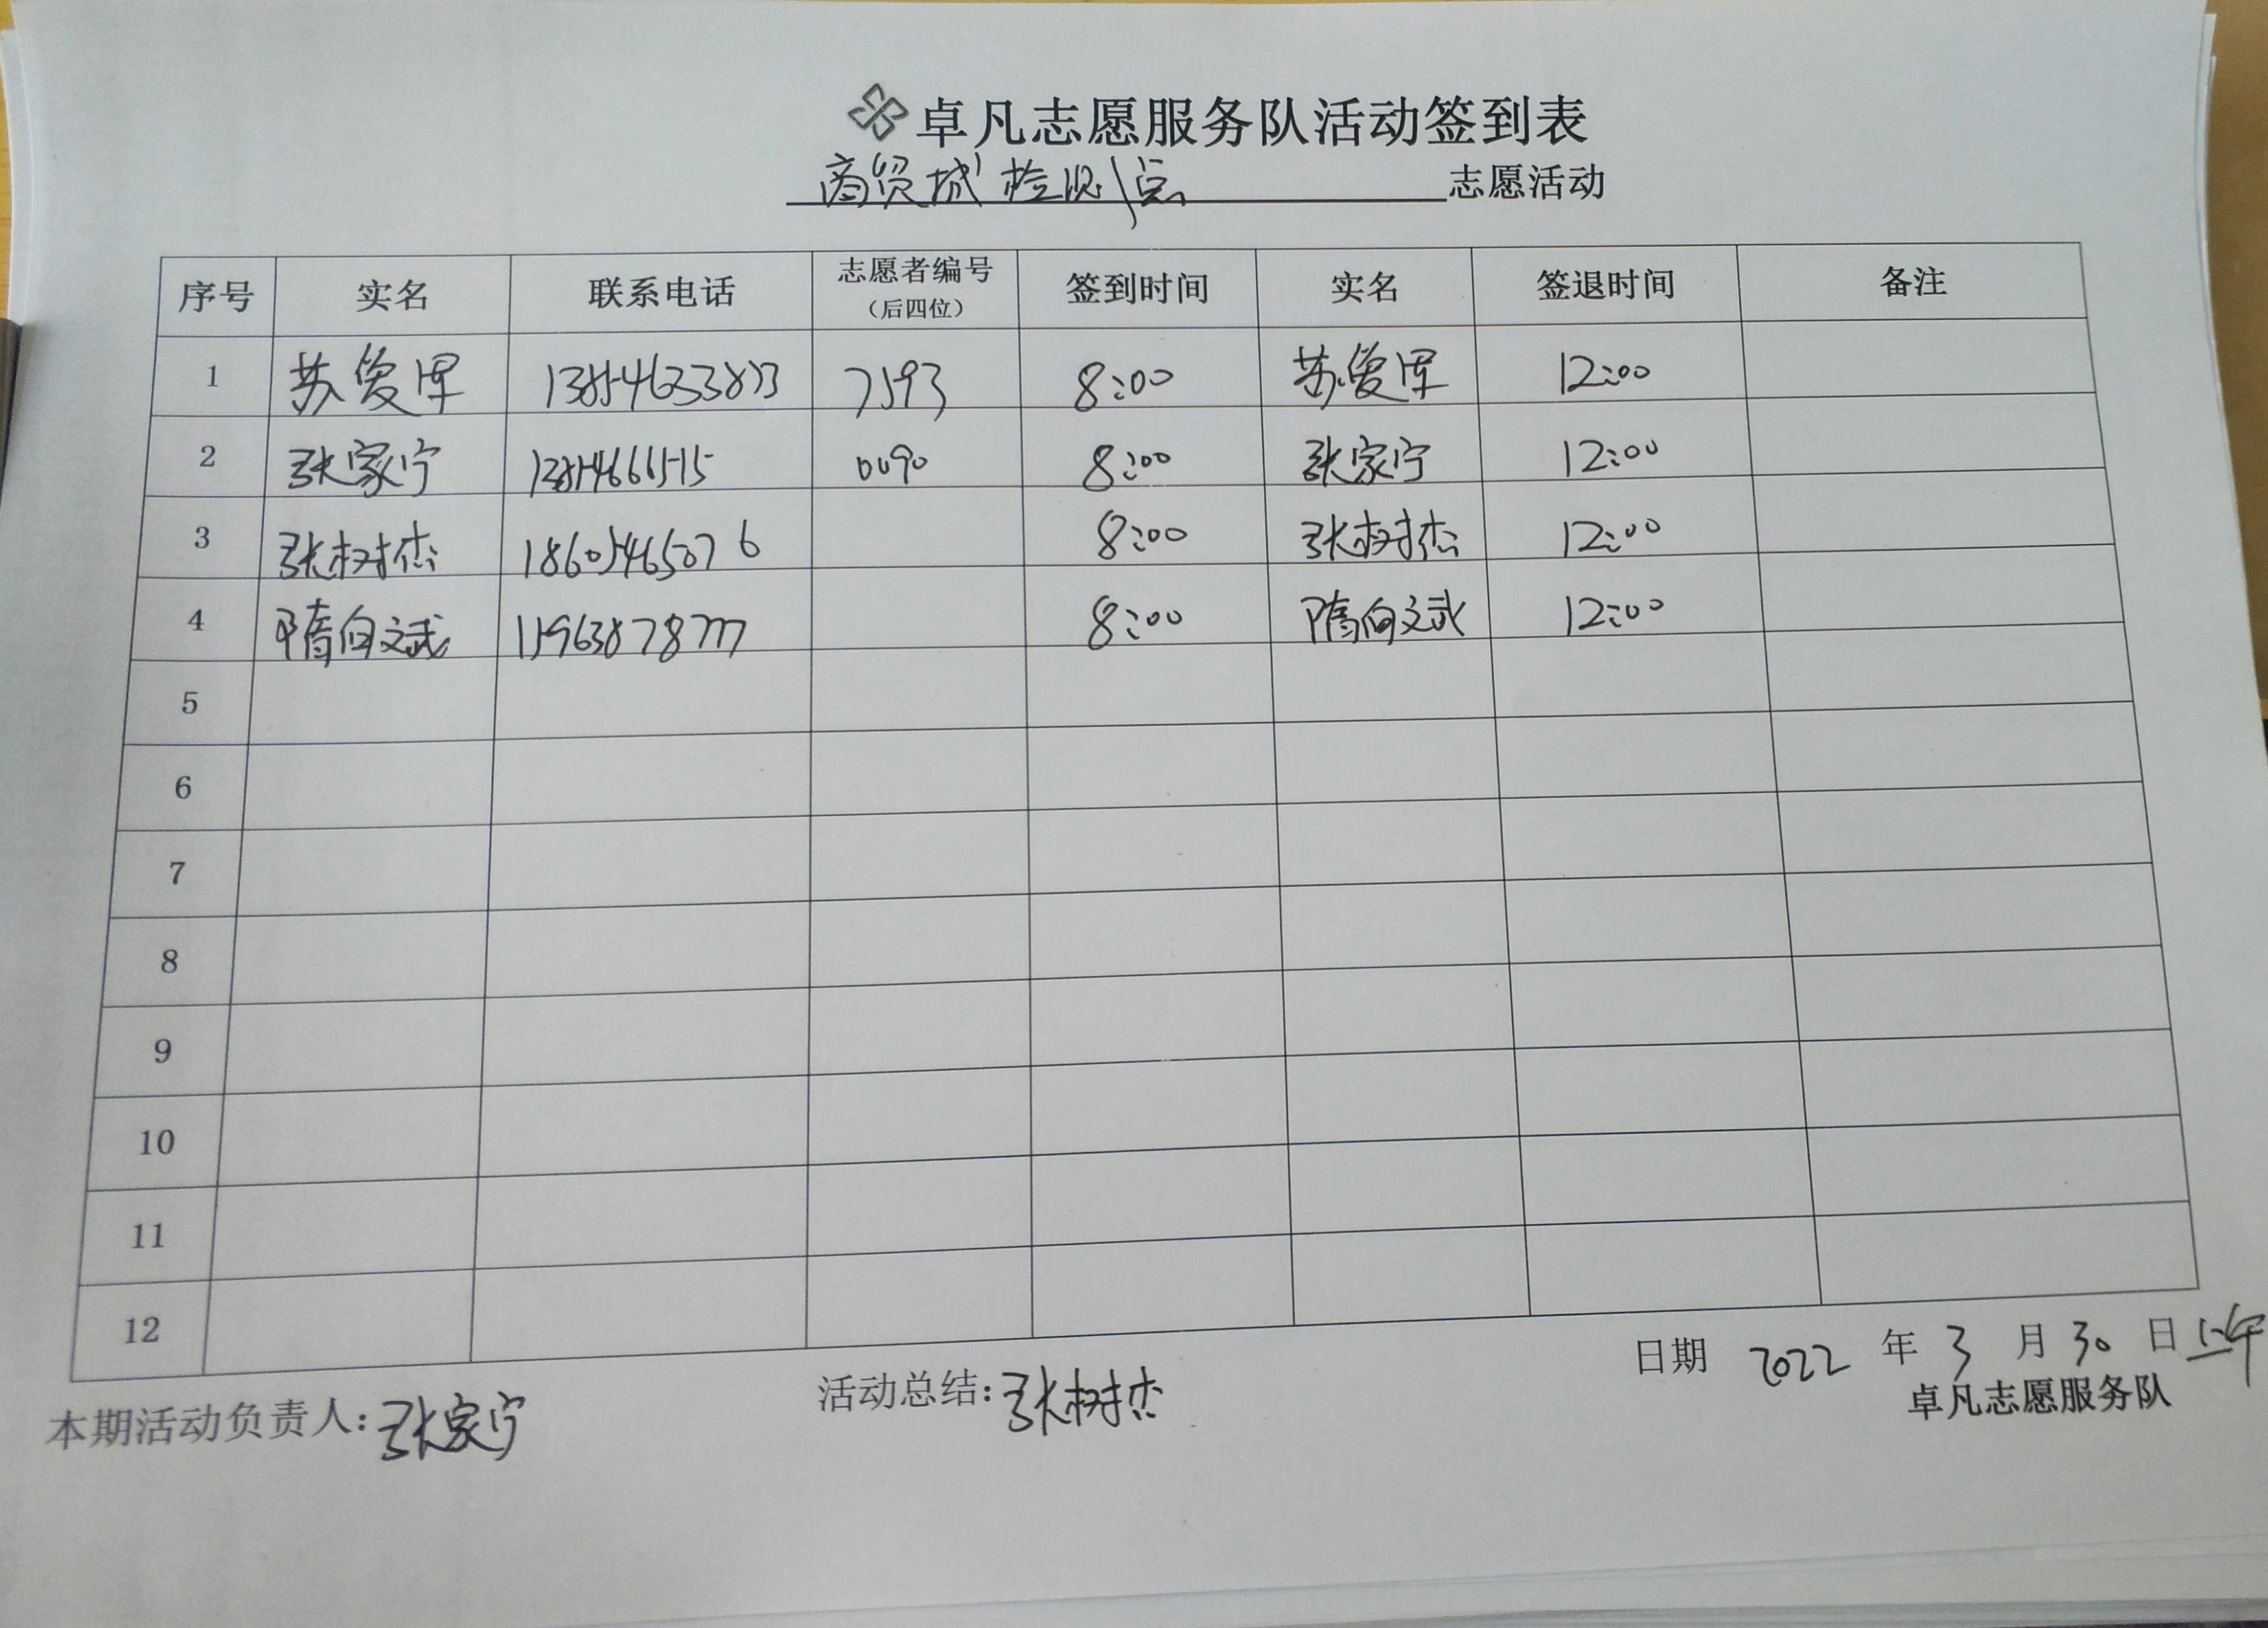 卓凡志愿服务队活动签到表
商贸城检测点 志愿活动
序号 实名 联系电话 志愿者编号（后四位） 签到时间 实名 签退时间 备注
1 苏俊军 7593 8:00 苏俊军 12:00
2 张家宁 0090 8:00 张家宁 12:00
3 张树杰 18605465076 8:00 张树杰 12:00
4 隋向斌 15963878777 8:00 隋向斌 12:00
5
6
7
8
9
10
11
12
日期 2022 年 3 月 30 日上午
本期活动负责人:张家宁 活动总结:张树杰
卓凡志愿服务队